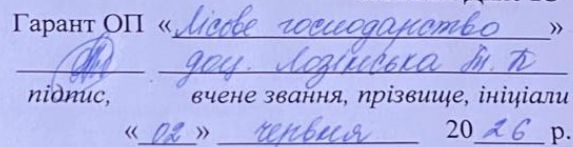 Гарант ОП «Лісове господарство»
доц. Лозінська Т. П.
підпис, вчене звання, прізвище, ініціали
«02» червня 2026 р.